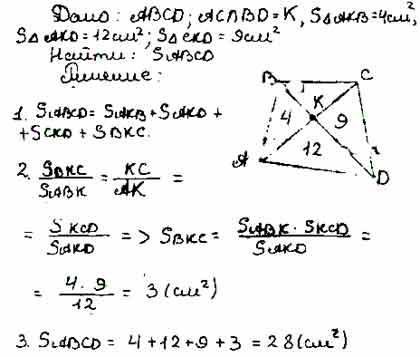 Дано: ABCD; AC∩BD=K, S△AKB=4см²,
S△AKD=12см²; S△CKD=9см²
Найти: SABCD
Решение:
1. SABCD=SAKB+SAKD+
+SCKD+SBKC.
2. SBKC/SABK = KC/AK =
= SKCD/SAKD => SBKC = SABK·SKCD/SAKD =
= 4·9/12 = 3 (см²)
3. SABCD = 4+12+9+3=28(см²)
B
C
K
4
9
12
A
D